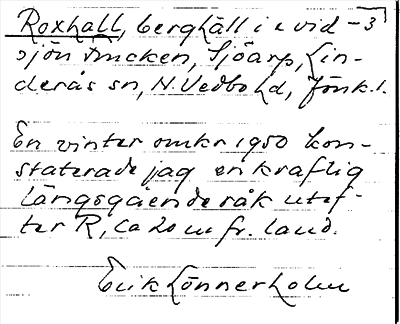 Roxhäll, berghäll i o vid -3
sjön Ämcken, Sjöarp, Lin-
derås sn, N. Vedbo hd, Jönk.l.
En vinter omkr 1950 kon-
staterade jag en kraftig
längsgående råk utef-
ter R, ca 20 m fr. land.
Erik Lönnerholm